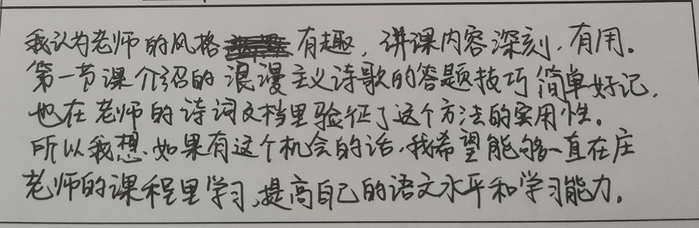 我认为老师的风格有趣，讲课内容深刻，有用。
第一节课介绍的浪漫主义诗歌的答题技巧简单好记，
也在老师的诗词文档里验证了这个方法的实用性。
所以我想，如果有这个机会的话，我希望能够一直在庄
老师的课程里学习，提高自己的语文水平和学习能力。